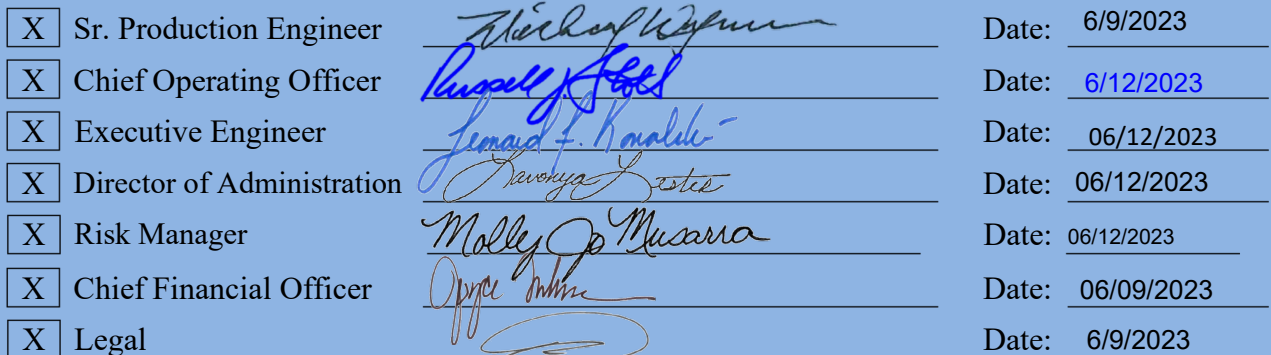 X Sr. Production Engineer Michael Date: 6/9/2023
X Chief Operating Officer Russell J Date: 6/12/2023
X Executive Engineer Date: 06/12/2023
X Director of Administration Lavonya Lester Date: 06/12/2023
X Risk Manager Molly Jo Musarra Date: 06/12/2023
X Chief Financial Officer Joyce Date: 06/09/2023
X Legal Date: 6/9/2023